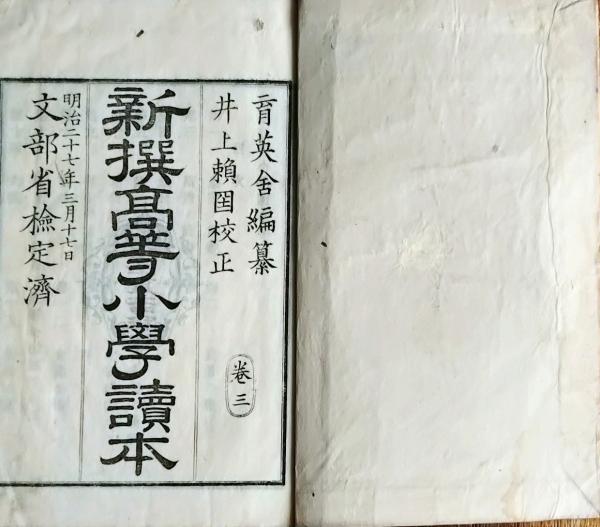 育英舍編纂
井上賴囶校正
卷三
新撰高等小學讀本
明治二十七年三月十七日
文部省檢定濟